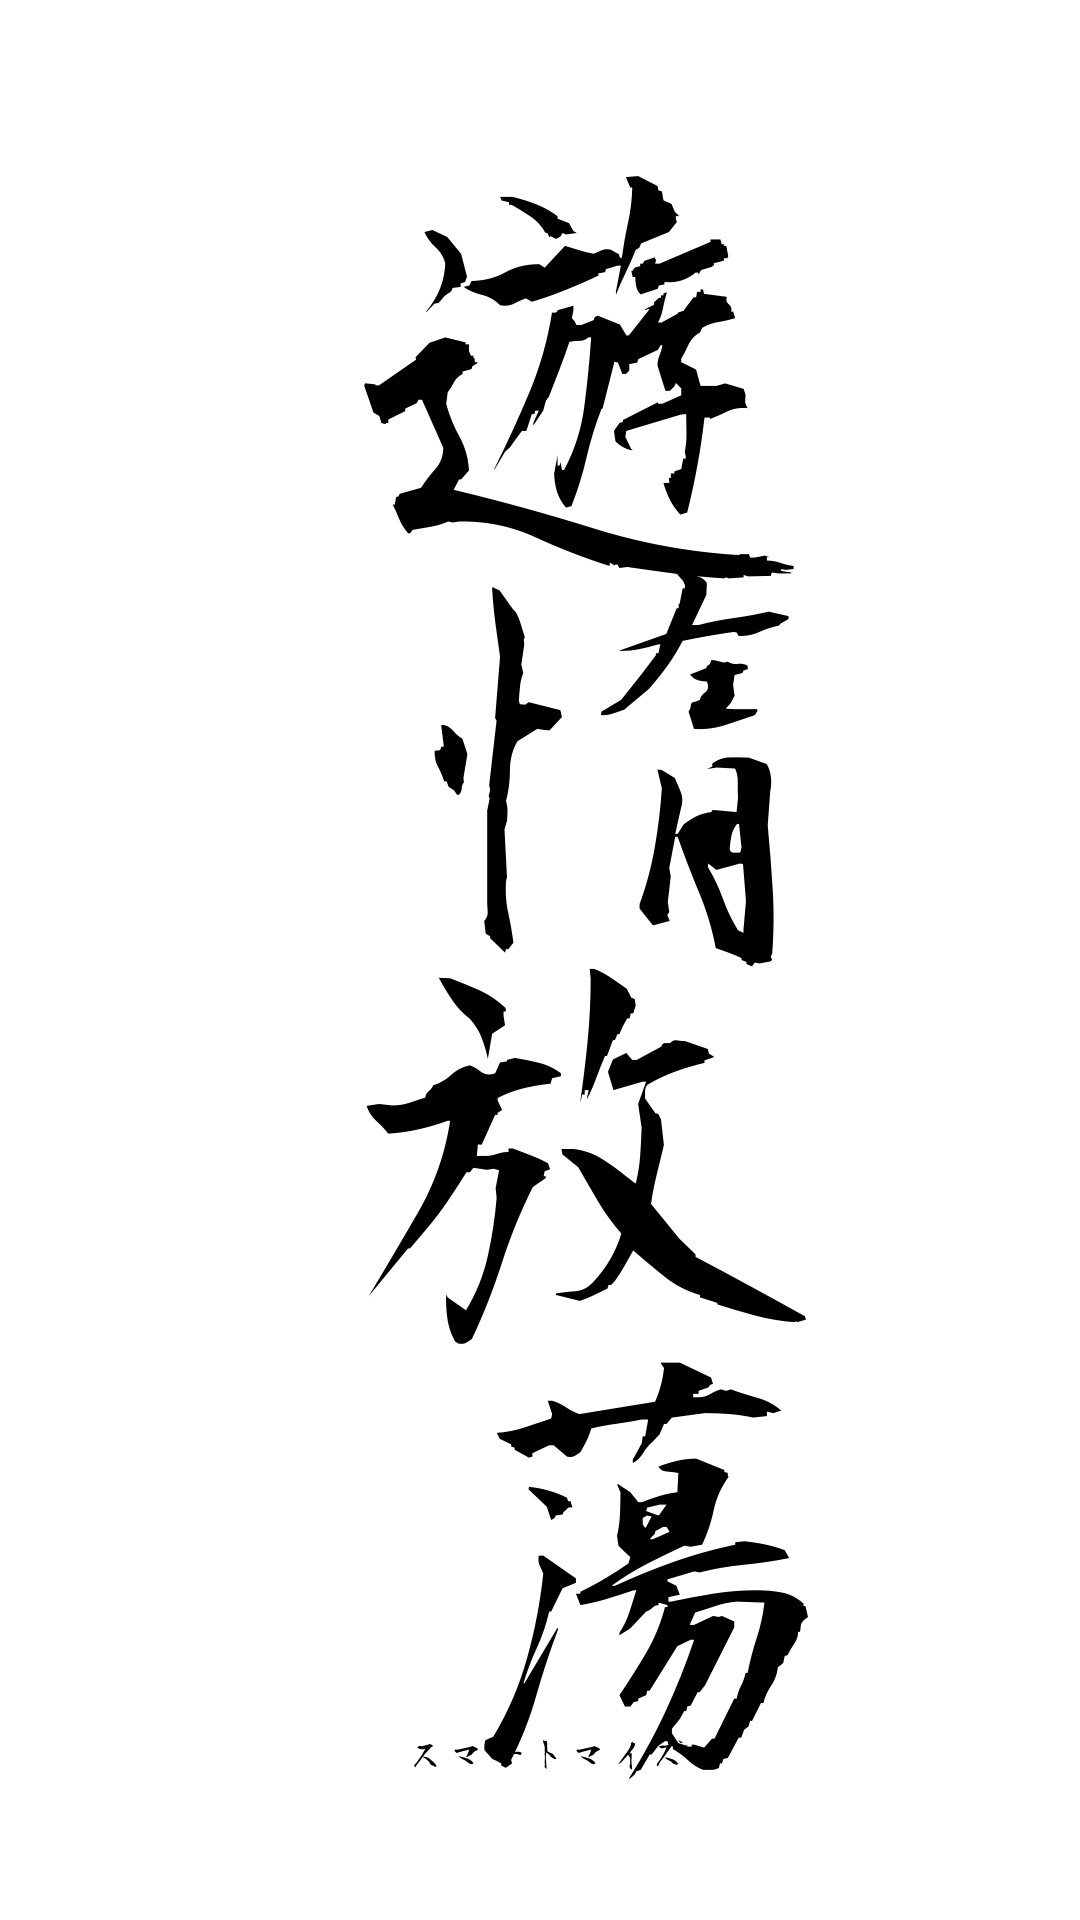 遊惰放蕩
スマートマイス